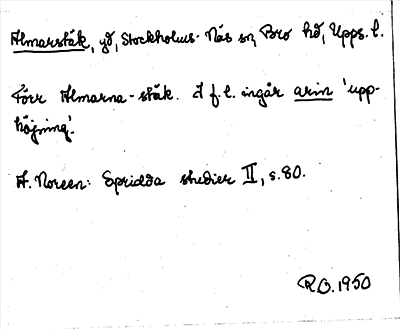 Almarstäk, gd, Stockholms-Näs sn, Bro hd, Upps. l.
Förr Almarna-stäk. I f.l. ingår arin 'upp-
höjning'.
A. Noreen: Spridda studier II, s. 80.
R.O. 1950